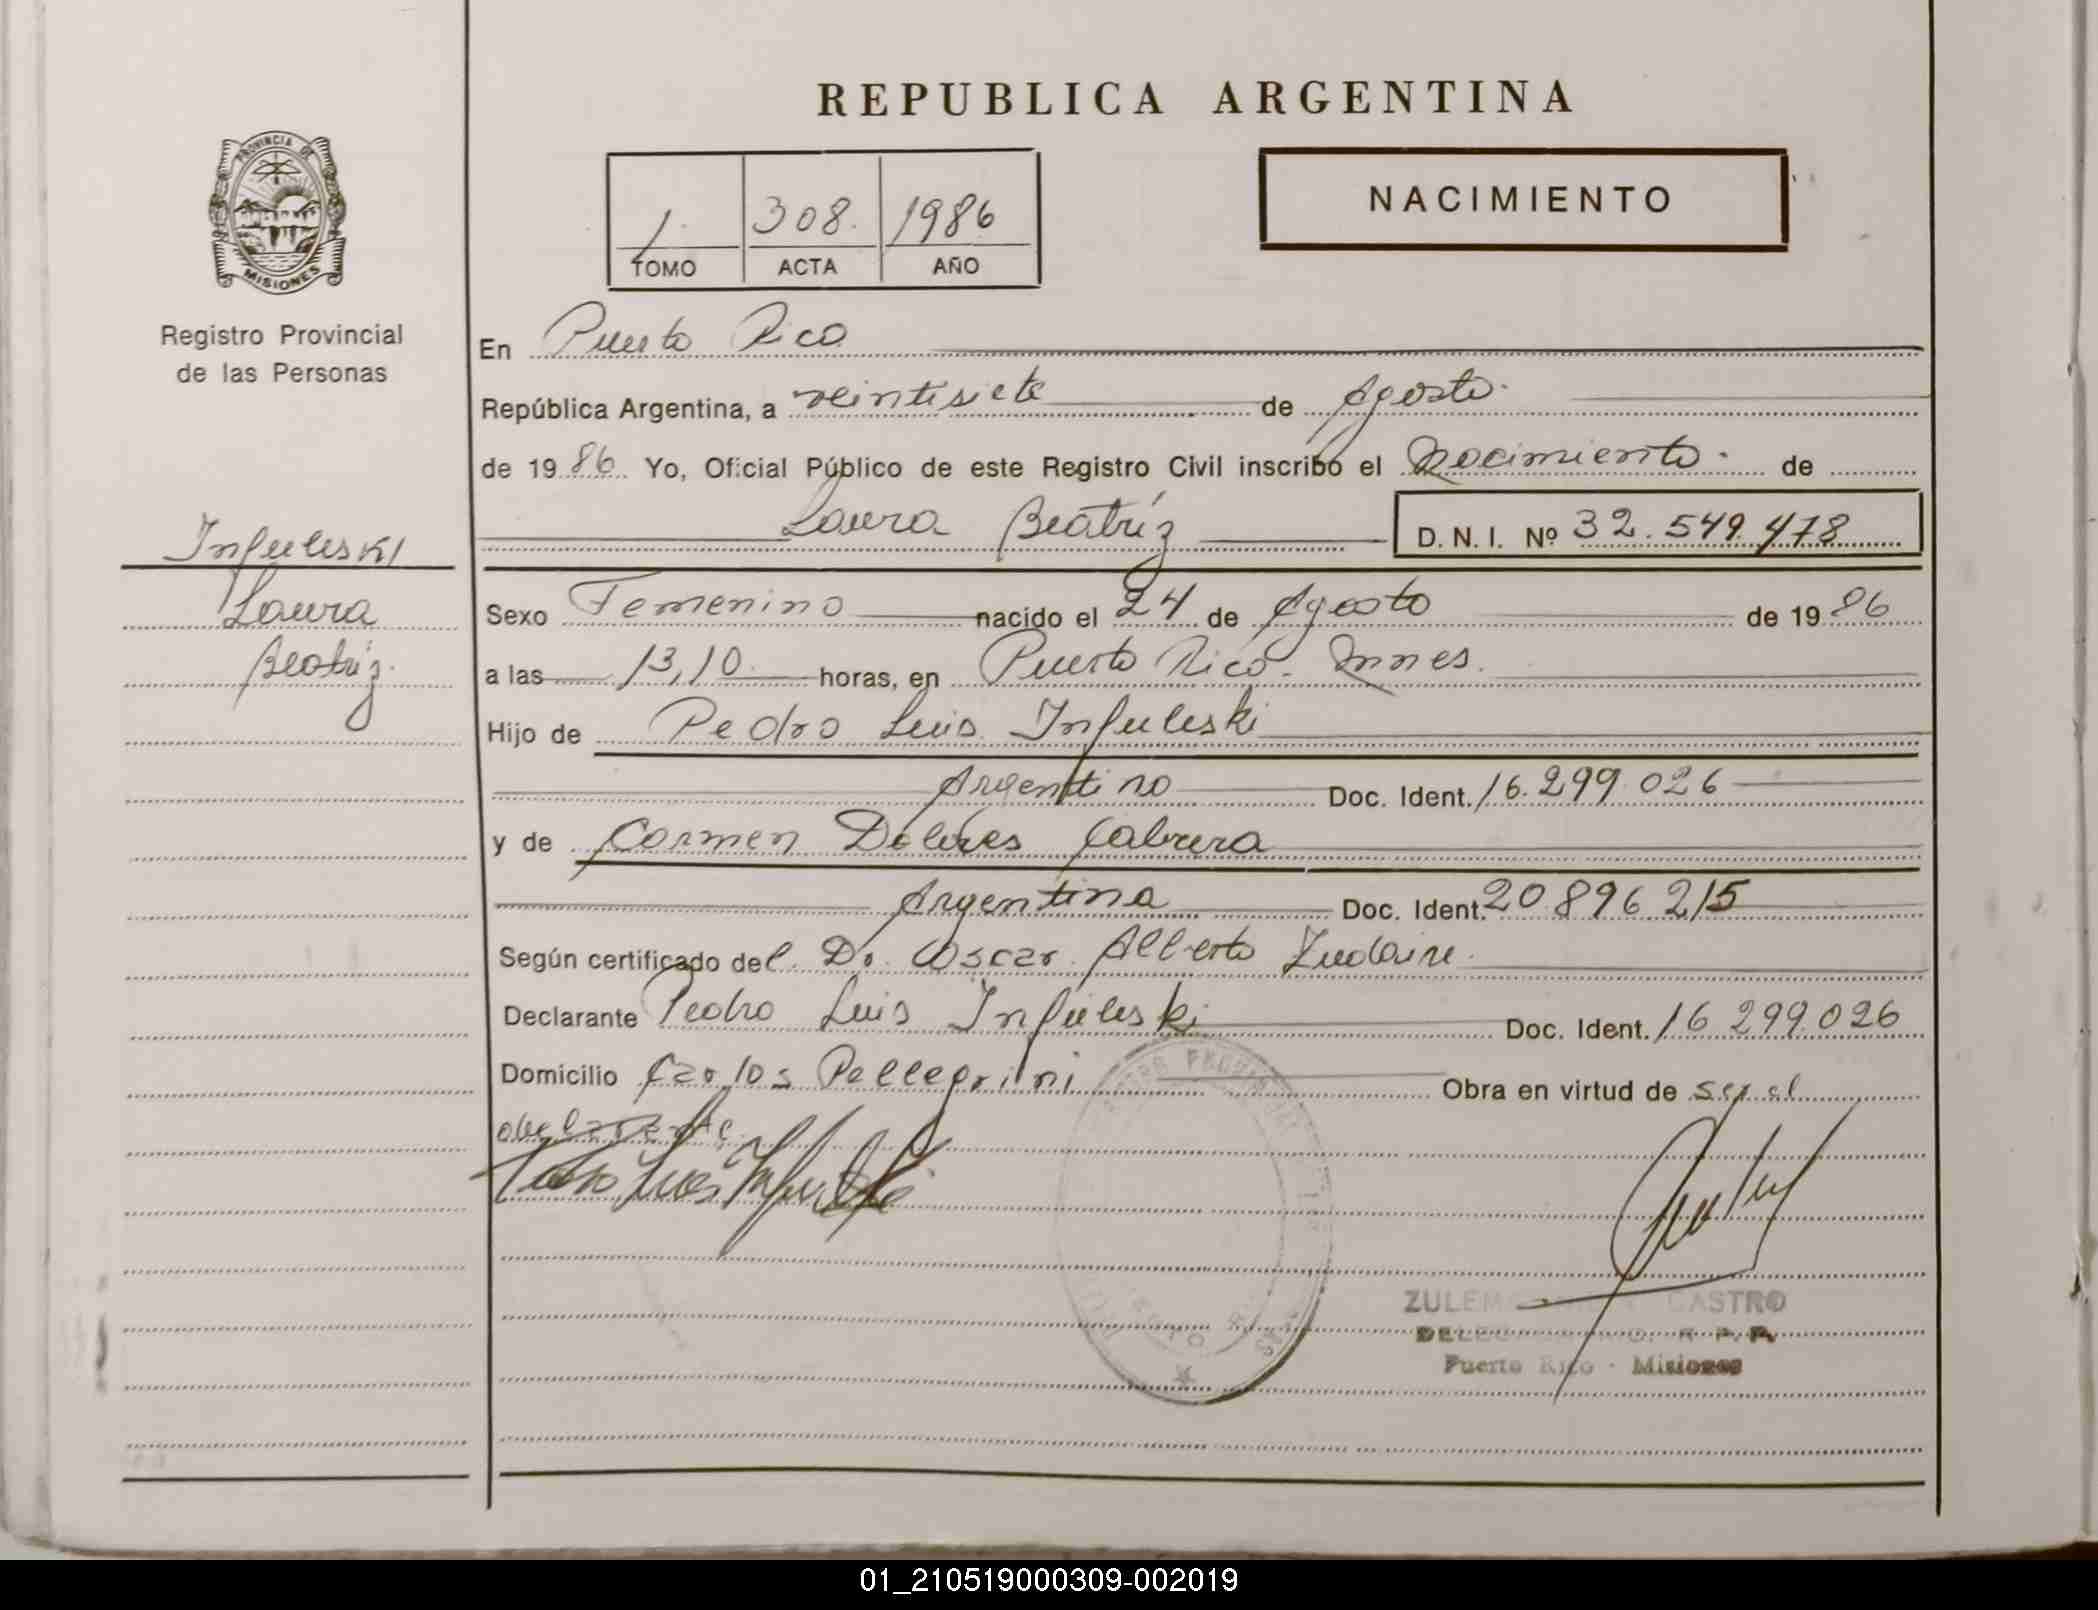 REPUBLICA ARGENTINA
PROVINCIA DE
MISIONES
Registro Provincial
de las Personas
1. 308. 1986
TOMO ACTA AÑO
NACIMIENTO
En Puerto Rico
República Argentina, a veintisiete de Agosto.
de 1986. Yo, Oficial Público de este Registro Civil inscribo el Nacimiento. de
Laura Beatríz D. N. I. Nº 32.549.478
Infuleski
Laura
Beatriz.
Sexo Femenino nacido el 24 de Agosto de 1986
a las 13,10. horas, en Puerto Rico. Mnes.
Hijo de Pedro Luis Infuleski
Argentino Doc. Ident. 16.299.026
y de Carmen Dolores Cabrera
Argentina Doc. Ident. 20 896 215
Según certificado del. Dr. Oscar Alberto
Declarante Pedro Luis Infuleski Doc. Ident. 16 299.026
Domicilio Carlos Pellegrini Obra en virtud de ser el
declarante.
ZULEMA CASTRO
R. P. P.
Puerto Rico - Misiones
01_210519000309-002019